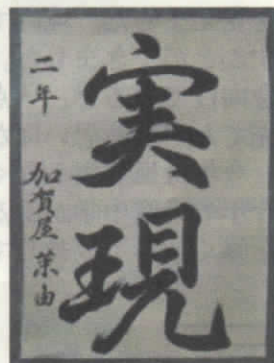 実現
二年 加賀屋茉由